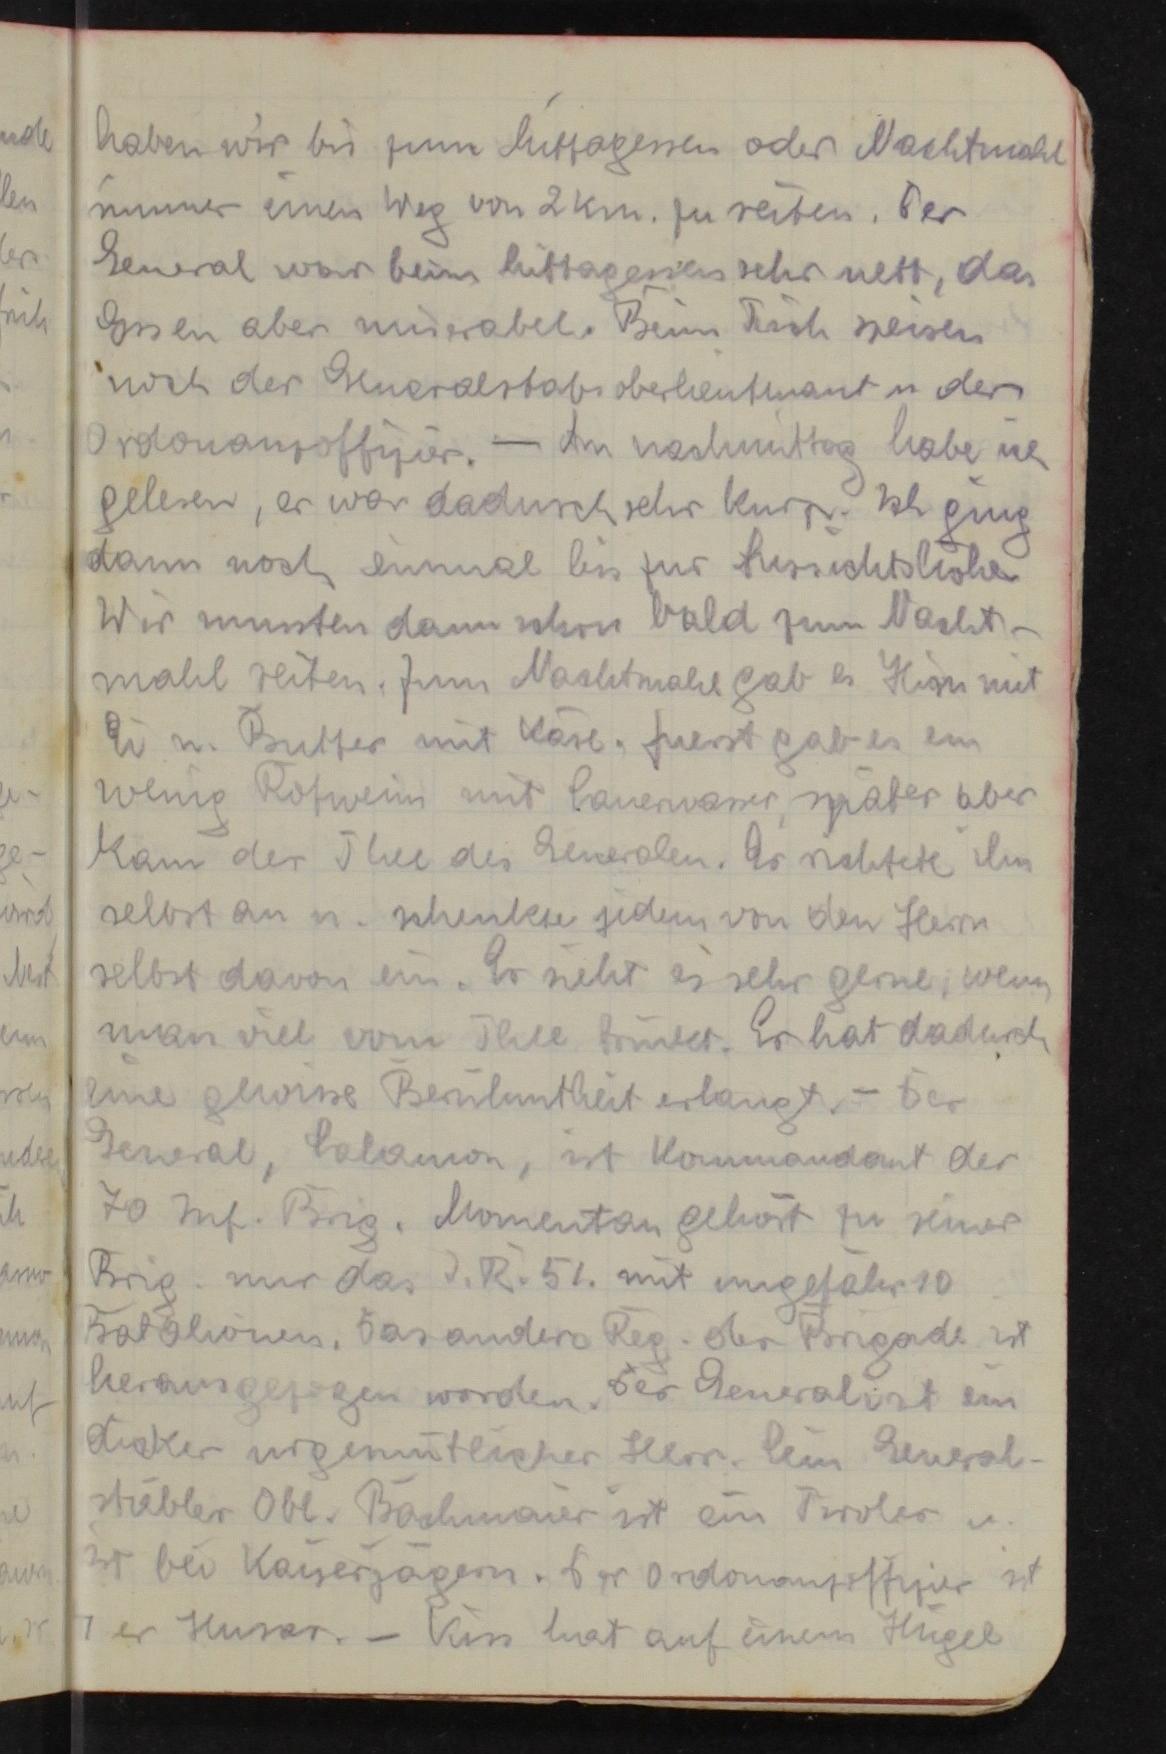 haben wir bis zum Mittagessen oder Nachtmahl
immer einen Weg von 2 Km. zu reiten. Der
General war beim Mittagessen sehr nett, das
Essen aber miserabel. Beim Tisch speisen
noch der Generalstabsoberleutnant u der
Ordonanzoffizier. — Am nachmittag habe ich
gelesen, er war dadurch sehr kurz. Ich ging
dann noch einmal bis zur Aussichtshöhe
Wir mussten dann schon bald zum Nacht-
mahl reiten. Zum Nachtmahl gab es Hirn mit
Ei u. Butter mit Käse. Zuerst gab es ein
wenig Rotwein mit Sauerwasser, später aber
kam der Thee des Generalen. Er richtete ihn
selbst an u. schenkte jedem von den Herrn
selbst davon ein. Er sieht es sehr gerne, wenn
man viel vom Thee trinkt. Er hat dadurch
eine gewisse Berühmtheit erlangt. — Der
General, Salamon, ist Kommandant der
70 Inf. Brig. Momentan gehört zu seiner
Brig. nur das I.R. 51. mit ungefähr 10
Batalionen. Das andere Reg. der Brigade ist
herausgezogen worden. Der General ist ein
dicker urgemütlicher Herr. Sein General-
stäbler Obl. Bachmaier ist ein Tiroler u.
ist bei Kaiserjägern. Der Ordonanzoffizier ist
er Husar. — Kiss hat auf einem Hügel